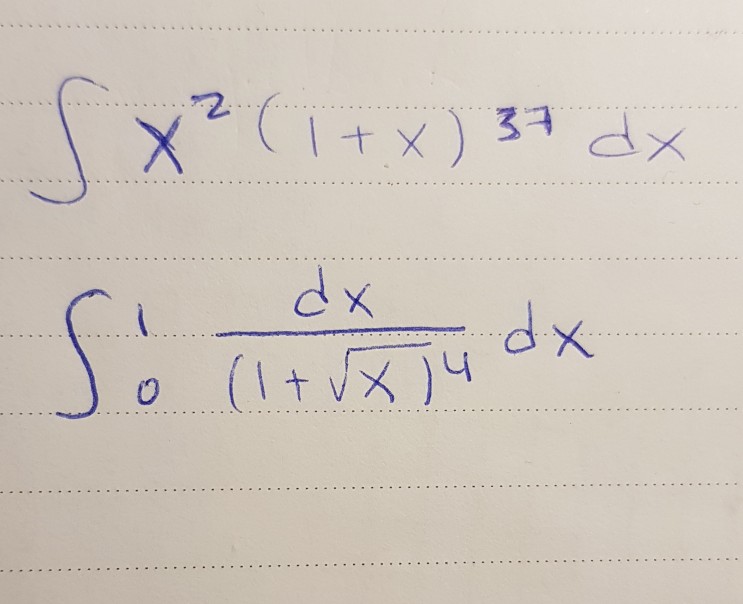 ∫ x² (1 + x)³⁷ dx
∫₀¹ dx / (1 + √x)⁴ dx